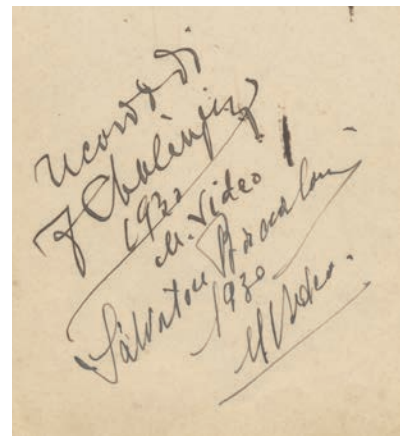 ricordo di
F Chaliapin
1930
M. Video
Salvatore Baccaloni
1930
M Video.